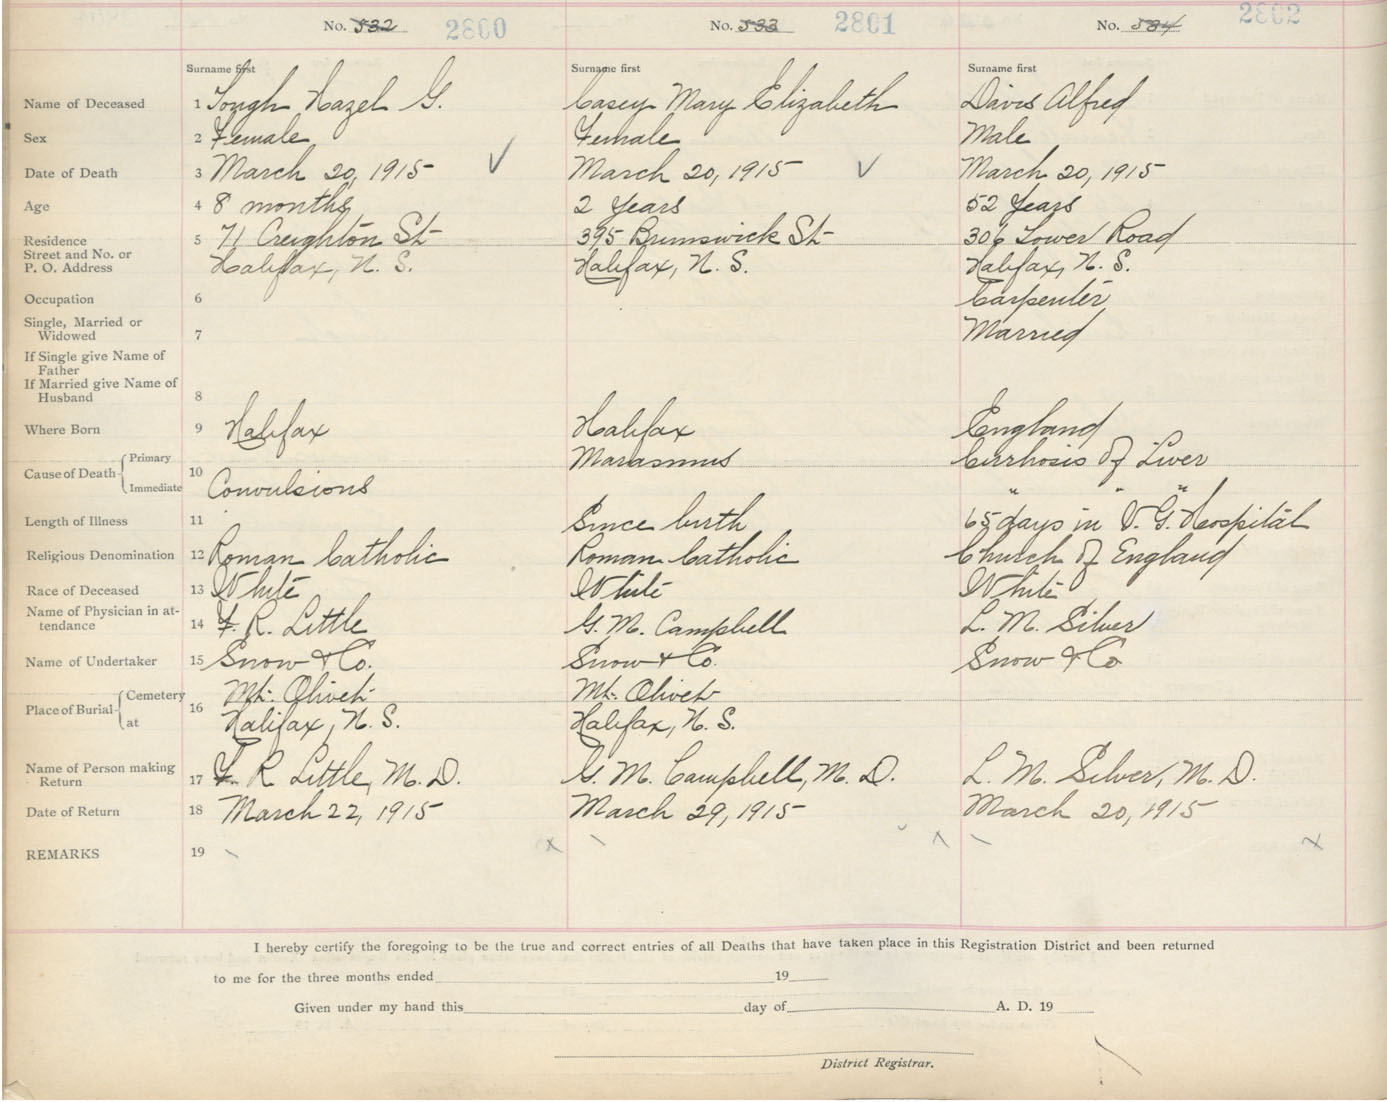 No. 532 2800 No. 533 2801 No. 534 2802
Surname first Surname first Surname first
Name of Deceased 1 Tough Hazel G. Casey Mary Elizabeth Davis Alfred
Sex 2 Female Female Male
Date of Death 3 March 20, 1915 March 20, 1915 March 20, 1915
Age 4 8 months 2 Years 52 Years
Residence 5 71 Creighton St 395 Brunswick St 306 Lower Road
Street and No. or
P. O. Address Halifax, N. S. Halifax, N. S. Halifax, N. S.
Occupation 6 Carpenter
Single, Married or
Widowed 7 Married
If Single give Name of
Father
If Married give Name of
Husband 8
Where Born 9 Halifax Halifax England
Cause of Death Primary 10 Marasmus Cirrhosis of Liver
Immediate Convulsions " " "
Length of Illness 11 Since birth 65 days in V. G. Hospital
Religious Denomination 12 Roman Catholic Roman Catholic Church of England
Race of Deceased 13 White White White
Name of Physician in at-
tendance 14 F. R. Little G. M. Campbell L. M. Silver
Name of Undertaker 15 Snow & Co. Snow & Co. Snow & Co
Place of Burial Cemetery 16 Mt. Olivet Mt. Olivet
at Halifax, N. S. Halifax, N. S.
Name of Person making
Return 17 F. R Little, M. D. G. M. Campbell, M. D. L. M. Silver, M. D.
Date of Return 18 March 22, 1915 March 29, 1915 March 20, 1915
REMARKS 19
I hereby certify the foregoing to be the true and correct entries of all Deaths that have taken place in this Registration District and been returned
to me for the three months ended 19
Given under my hand this day of A. D. 19
District Registrar.